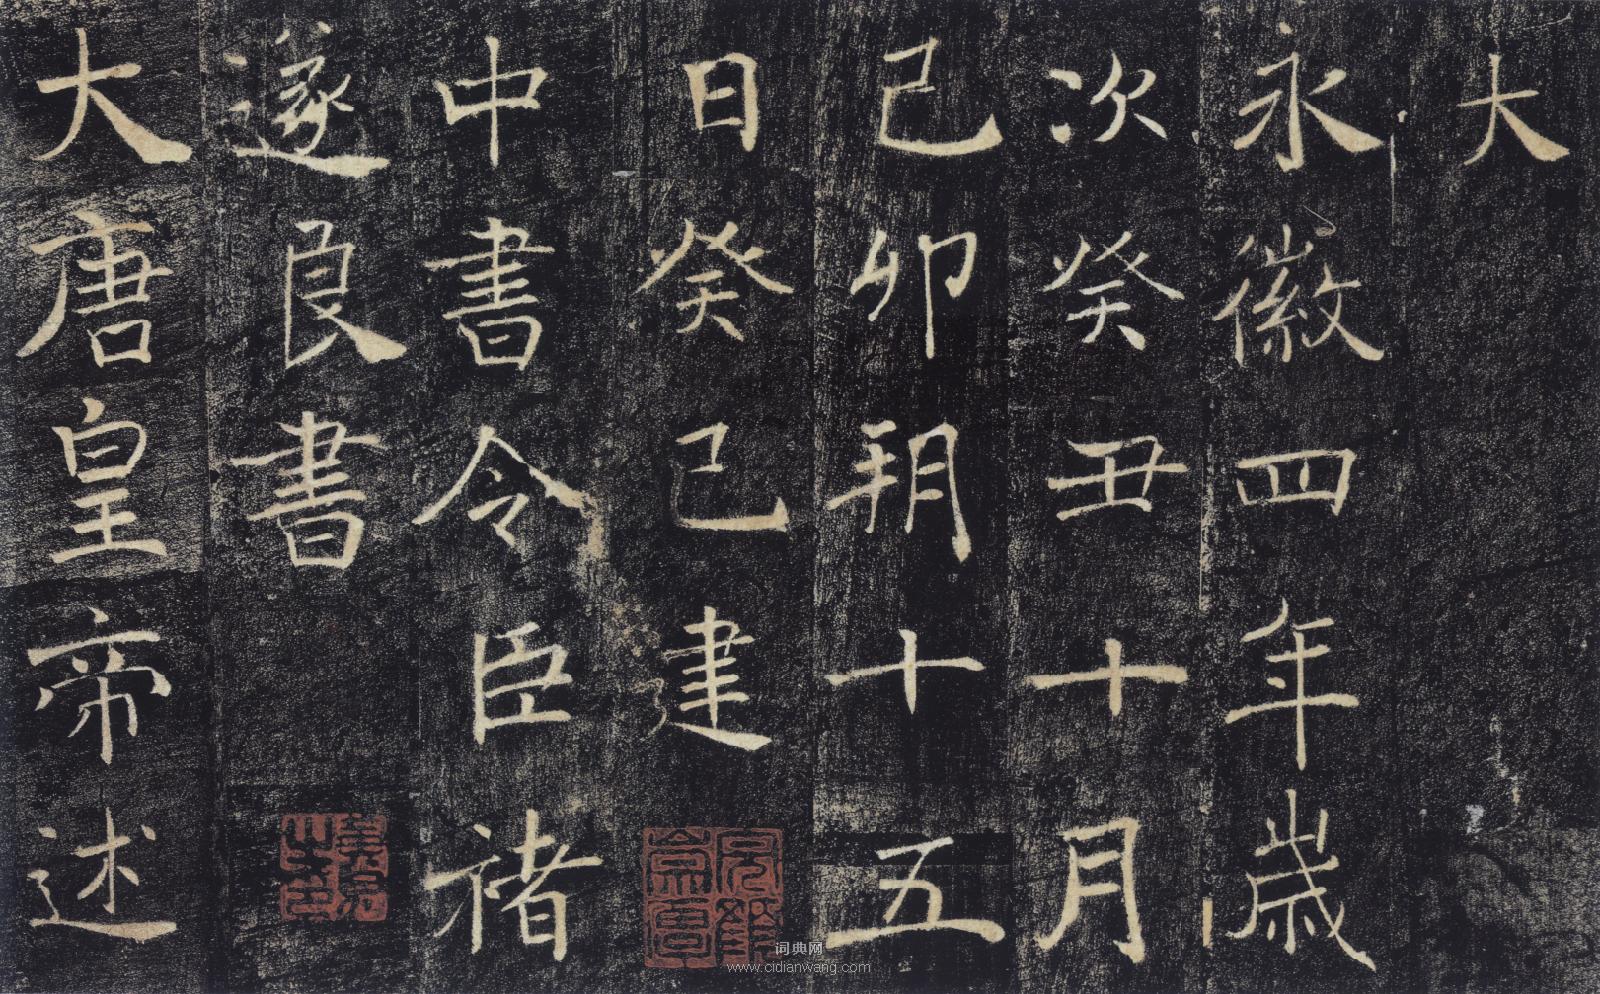 大
永徽四年歲
次癸丑十月
己卯朔十五
日癸巳建
中書令臣褚
遂良書
大唐皇帝述
词典网
www.cidianwang.com